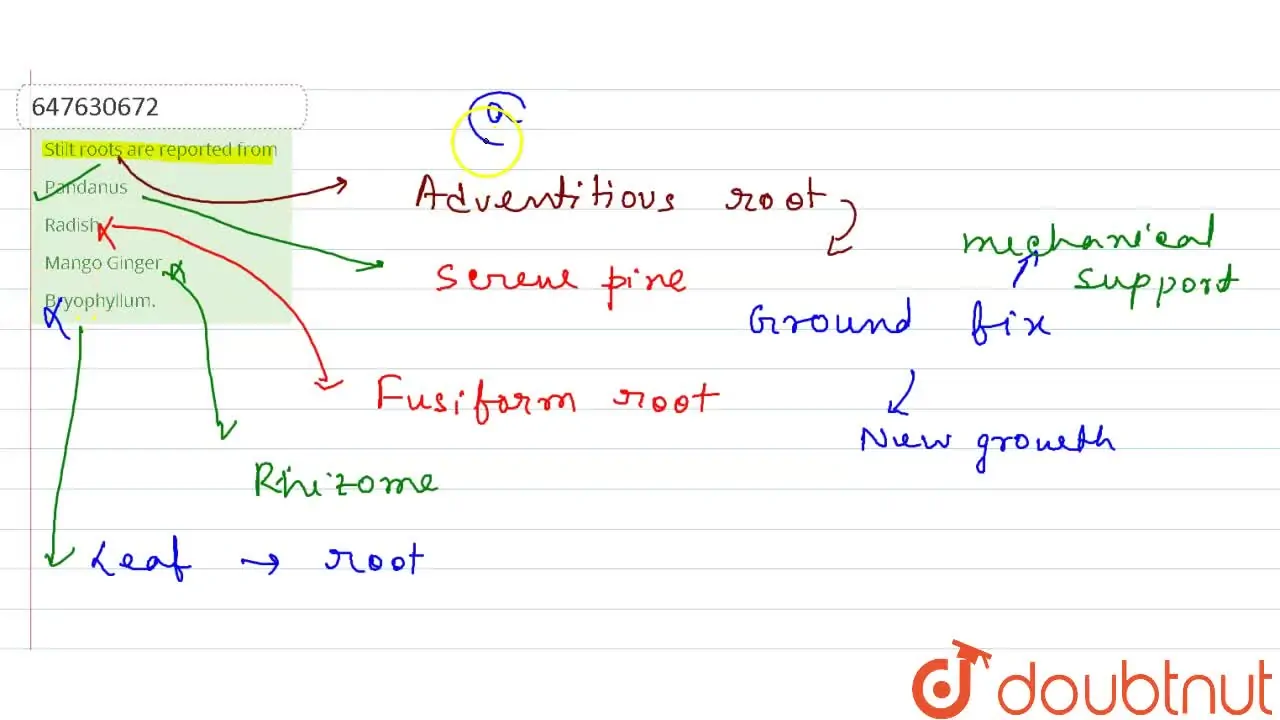 647630672
Stilt roots are reported from
Pandanus
Radish
Mango Ginger
Bryophyllum.
a
Adventitious root
mechanical
support
Screw pine
Ground fix
Fusiform root
New growth
Rhizome
Leaf → root
doubtnut